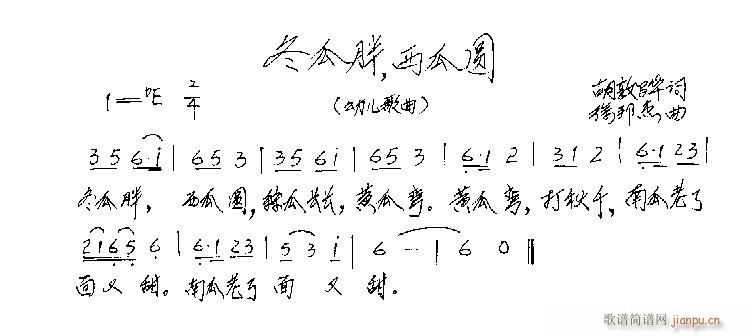 冬瓜胖,西瓜圆
1=♭E 2/4
(幼儿歌曲)
胡敦骅 词
杨邦杰 曲
35 6·i | 65 3 | 35 6i | 65 3 | 6·1 2 | 31 2 | 6·1 23 |
冬瓜胖, 西瓜圆,丝瓜长长,黄瓜弯。黄瓜弯,打秋千,南瓜老了
2165 6 | 6·1 23 | 5 3 i | 6 -- | 6 0 ||
面又甜。南瓜老了 面 又 甜。
歌谱简谱网
jianpu.cn